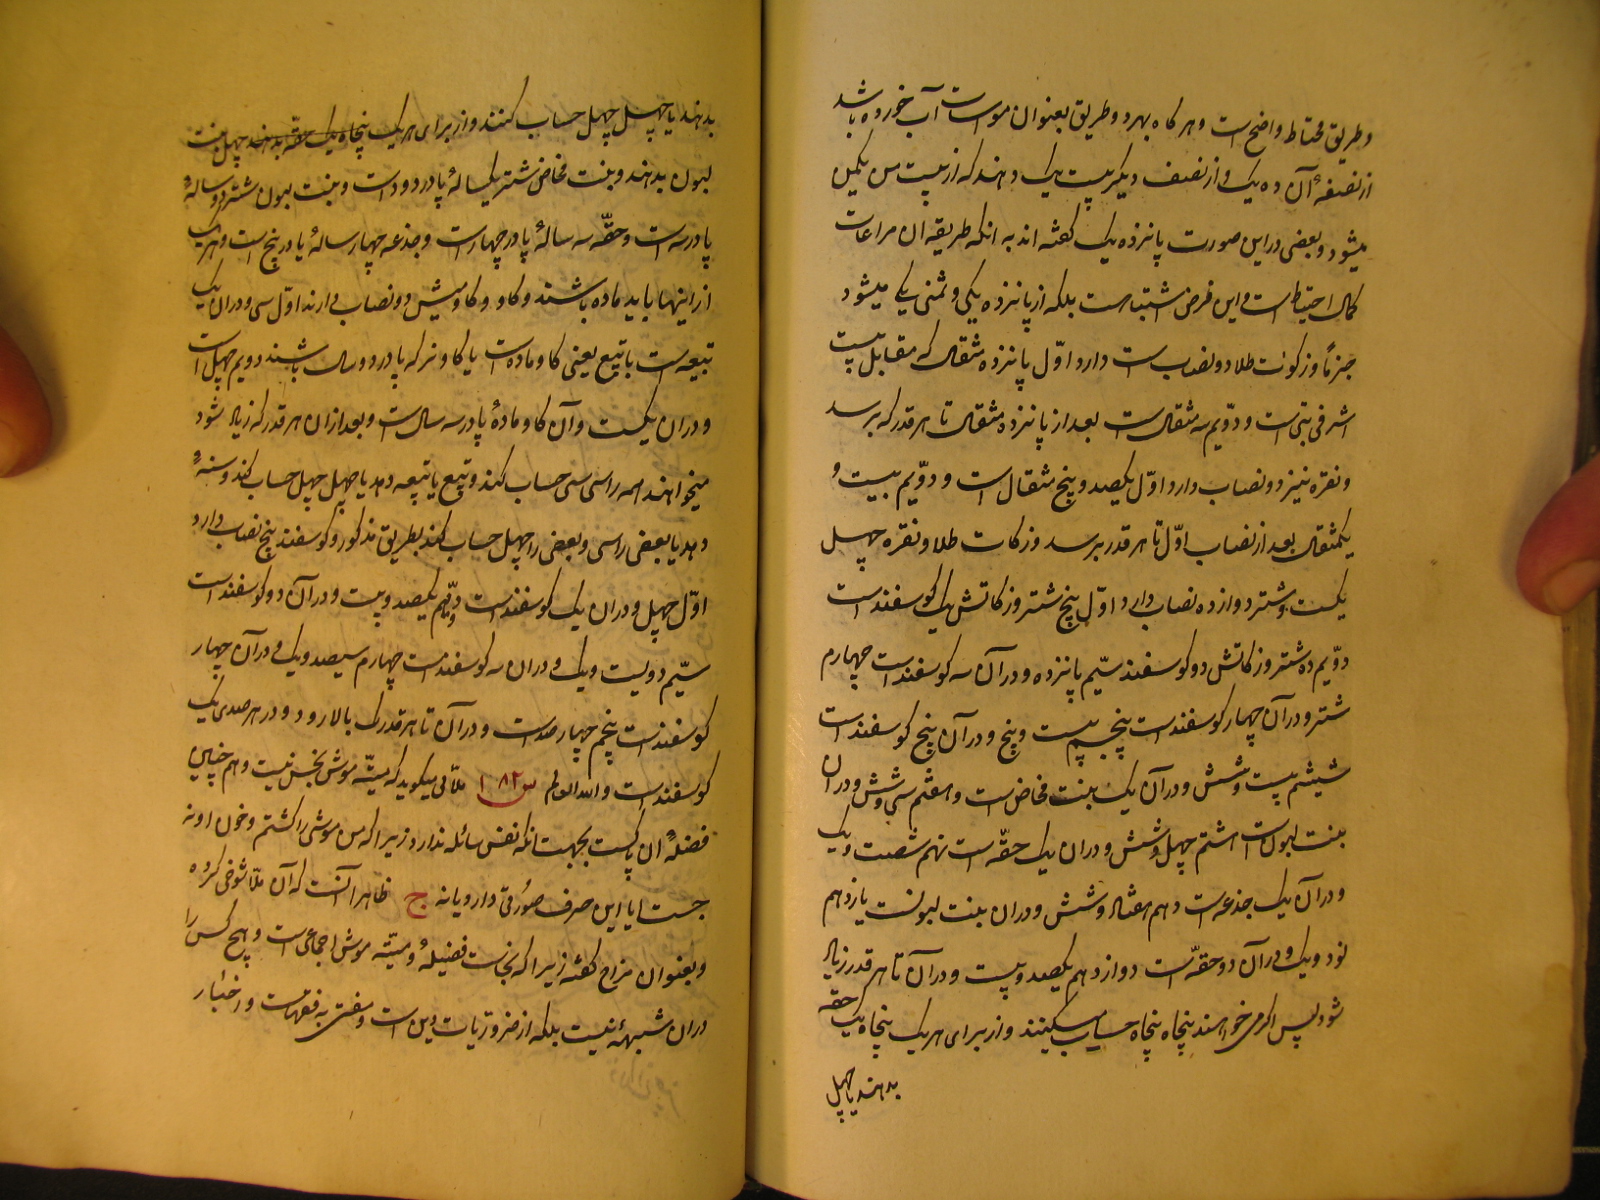 و طریق محتاط واضح است و هر کاه بهر دو طریق بعنوان مواسات آب خورده باشد
از نصفهٔ آن ده یک و از نصف دیکر بیست یک دهند که از بیست من یکمن
میشود و بعضی در این صورت پانزده یک کفته اند به انکه طریقه ان مراعات
کمال احتیاط است و این فرض اشتباه است بلکه از پانزده یکی و ثمنی یکی میشود
جزمًا و زکوت طلا دو نصاب است دارد اوّل پانزده مثقال که مقابل بیست
اشرفی بتی است و دوّیم سه مثقال است بعد از پانزده مثقال تا هر قدر که برسد
و نقره نیز دو نصاب دارد اوّل یکصد و پنج مثقال است و دوّیم بیست و
یکمثقال بعد از نصاب اوّل تا هر قدر برسد و زکات طلا و نقره چهل
یکست و شتر دوازده نصاب دارد اوّل پنج شتر و زکاتش یک کوسفند است
دوّیم ده شتر و زکاتش دو کوسفند سیّم پانزده و در آن سه کوسفند است چهارم
شتر و در آن چهار کوسفند است پنجم بیست و پنج و در آن پنج کوسفند است
شیشم بیست و شش و در آن یک بنت مخاض است و هفتم سی و شش و در ان
بنت لبون است هشتم چهل و شش و در ان یک حقّه است نهم شصت و یک
و در آن یک جذعه است دهم هفتاد و شش و در ان بنت لبونست یازدهم
نود و یک و در آن دو حقّه است دوازدهم یکصد و بیست و در آن تا هر قدر زیاد
شود پس اکر می خواهند پنجاه پنجاه حساب میکنند و از برای هر یک پنجاه یک حقه
بدهند یا چهل
بدهند یا چهل چهل حساب کنند و از برای هر یک پنجاه یک حقّه بدهند چهل بنت
لبون بدهند و بنت مخاض شتر یکسالهٔ پا در دو است و بنت لبون شتر دو سالهٔ
پا در سه است و حقّه سه سالهٔ پا در چهار است و جذعه چهار سالهٔ پا در پنج است و هر یک
از اینها باید ماده باشند و کاو و کاومیش دو نصاب دارند اوّل سی و در ان یک
تبیعه است یا تبیع یعنی کاو ماده است یا کاو نر که پا در دو سال باشند دویم چهل است
و در ان یکست و آن کاو مادهٔ پا در سه سال است و بعد از ان هر قدر که زیاد شود
میخواهند همه را سی سی حساب کند و تبیع یا تبیعه دهد یا چهل چهل حساب کند و سنهٔ
دهد یا بعضی را سی و بعضی را چهل حساب کند بطریق مذکور و کوسفند پنج نصاب دارد
اوّل چهل و در ان یک کوسفند است دوّیم یکصد و بیست و در آن دو کوسفند است
سیّم دویست و یک و در ان سه کوسفند است چهارم سیصد و یک و در آن چهار
کوسفند است پنجم چهار صد است و در آن تا هر قدر که بالا رود و در هر صدی یک
کوسفند است و الله العالم س ۱۸۲ ملائی میکوید که میتّه موش نجس نیست و هم چنین
فضلهٔ ان پاکست بجهت انکه نفس سائله ندارد زیرا که من موشی را کشتم و خون او نه
جست ایا این حرف صورتی دارد یا نه ج ظاهرا آنست که آن ملّا شوخی کرده
و بعنوان مزاح کفته زیرا که نجاست فضیلهٔ و میتّه موش اجماعی است و هیچ کس را
در ان شبههٔ نیست بلکه از ضروریات دین است و مفتی به فقهاست و اخبار